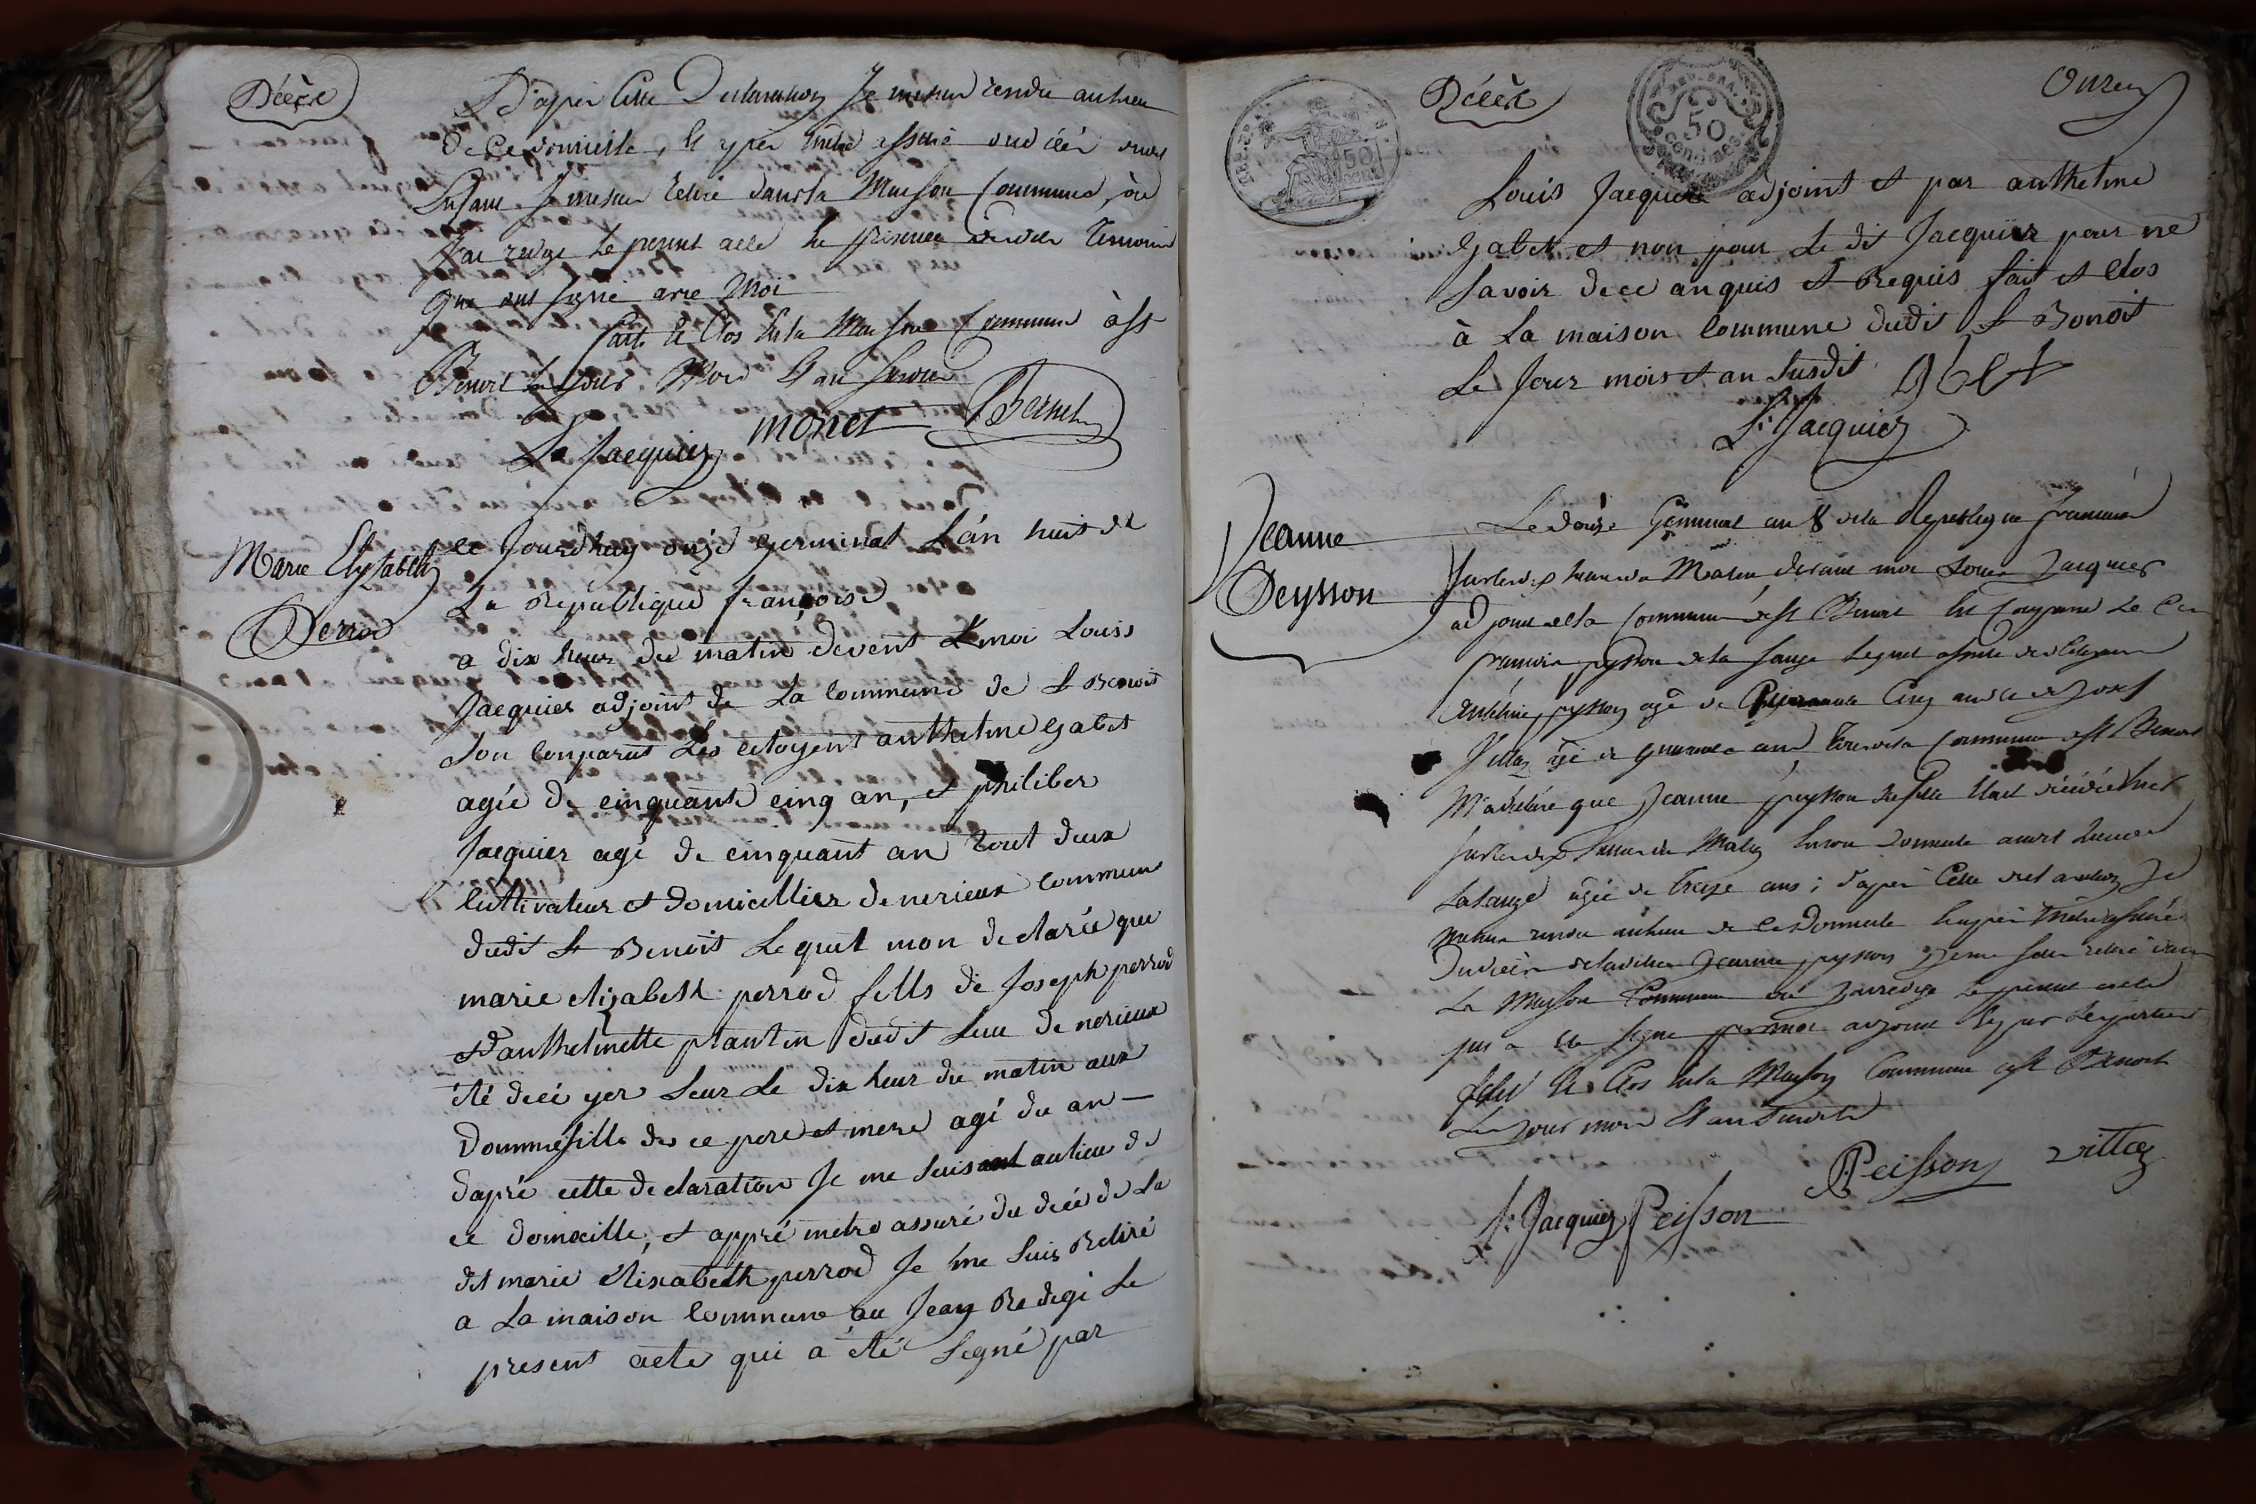 Décès
D'après cette Declaration Je me suis rendu au lieu
de ce domicille, et apres m'etre assuré du décés
Enfant Je me suis retiré dans la Maison Commune, où
J'ai redigé le present acte en presence
que ont signé avec Moi
fait et Clos en la Maison Commune à St
Benoit les jour Mois et an
Ls Jacquier monet Bernet
Marie Elysabeth
Perrod
ce Jourdhuy onze germinal L'an huit de
La Republique françoise
a dix heur du matin devent moi Louis
Jacquier adjoint de La commune de St Benoit
son conparut Les citoyent anthelme gabet
agée de cinquante cinq an, et philiber
Jacquier agé de cinquant an tout deux
cultivateur et domicillier de nerieux commun
dudit St Benoit Lequel mon declarée que
marie elizabeth perrod fills de Joseph perrod
et d'anthelmette plantin dudit Lieu de nerieux
été deci yer seur Le dix heur du matin aux
Dommesille de ce pere et mere agé du an
dapré cette declaration Je me suis au lieu de
ce domecille, et appré metre assuré du decé de La
dit marie elizabeth perrod Je me suis Retiré
a La maison commune au Jeay Redigé Le
present acte qui a été Segné par
Décès
Onze
50
50
centimes
Louis Jacquier adjoint et par anthelme
gabet et non pour Le dit Jacquier pour ne
Savoir de ce anquis et Requis fait et clos
à La maison Commune dudit St Bonoit
Le Jour mois et an Susdit
gbet
Ls Jacquier
Jeanne
Peysson
Le douze Germinal an 8 de la Republique francaise
Sur les dix heures du Matin devant moi Louis Jacquier
adjoint de la Commune de St Benoit est Comparu le Cen
francois peysson de la Sauge Lequel assisté des Citoyens
Anthelme peysson agé de Cinq ans et de Josef
Vittoz agé de quarante ans tous de la Commune de St Benoit
M'a déclaré que Jeanne peysson sa fille etait décédée hier
sur les dix heures du Matin en son domicile audit Lieu de
La Sauge agée de treize ans; d'après Cette declaration Je
me suis rendu au lieu de ce Domicile et après m'etre assuré
Du décès de la dite Jeanne peysson Je me suis retiré dans
La Maison Commune où J'ai redigé Le present acte
qui a été signé par moi adjoint
fait et Clos en la Maison Commune de St Benoit
Les jour mois et an Susdit
Peisson vittoz
Ls Jacquier Peisson